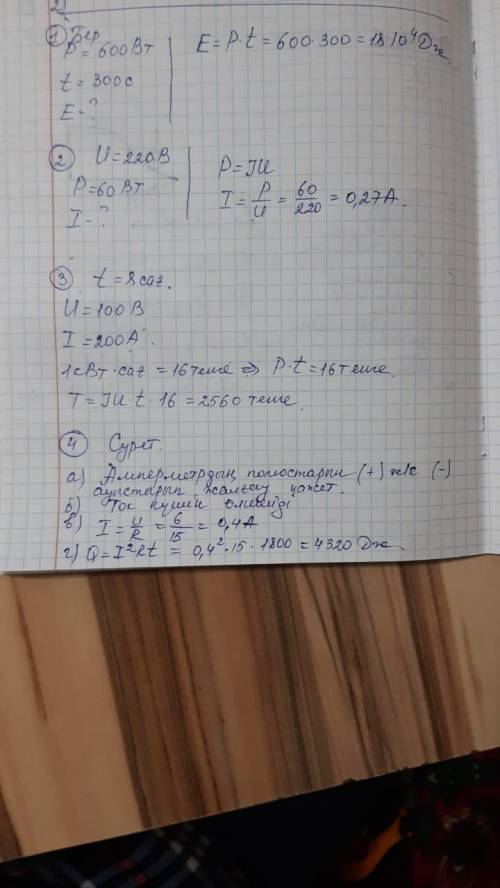 2)
① Бер
P = 600Вт
E = P·t = 600·300 = 18·10⁴ Дж.
t = 300с
E - ?
② U = 220В
P = 60 Вт
I - ?
P = IU
I = P/U = 60/220 = 0,27А.
③ t = 8 саг.
U = 100 В
I = 200А.
1кВт·саг = 16 теңге ⇒ P·t = 16 теңге.
T = IU·t·16 = 2560 теңге.
④ Сурет.
а) Амперметрдың полюстарын (+) ж/е (-)
ауыстырып жалғау қажет.
б) Ток күшін өлшейді
в) I = U/R = 6/15 = 0,4 А
г) Q = I²Rt = 0,4²·15·1800 = 4320 Дж.